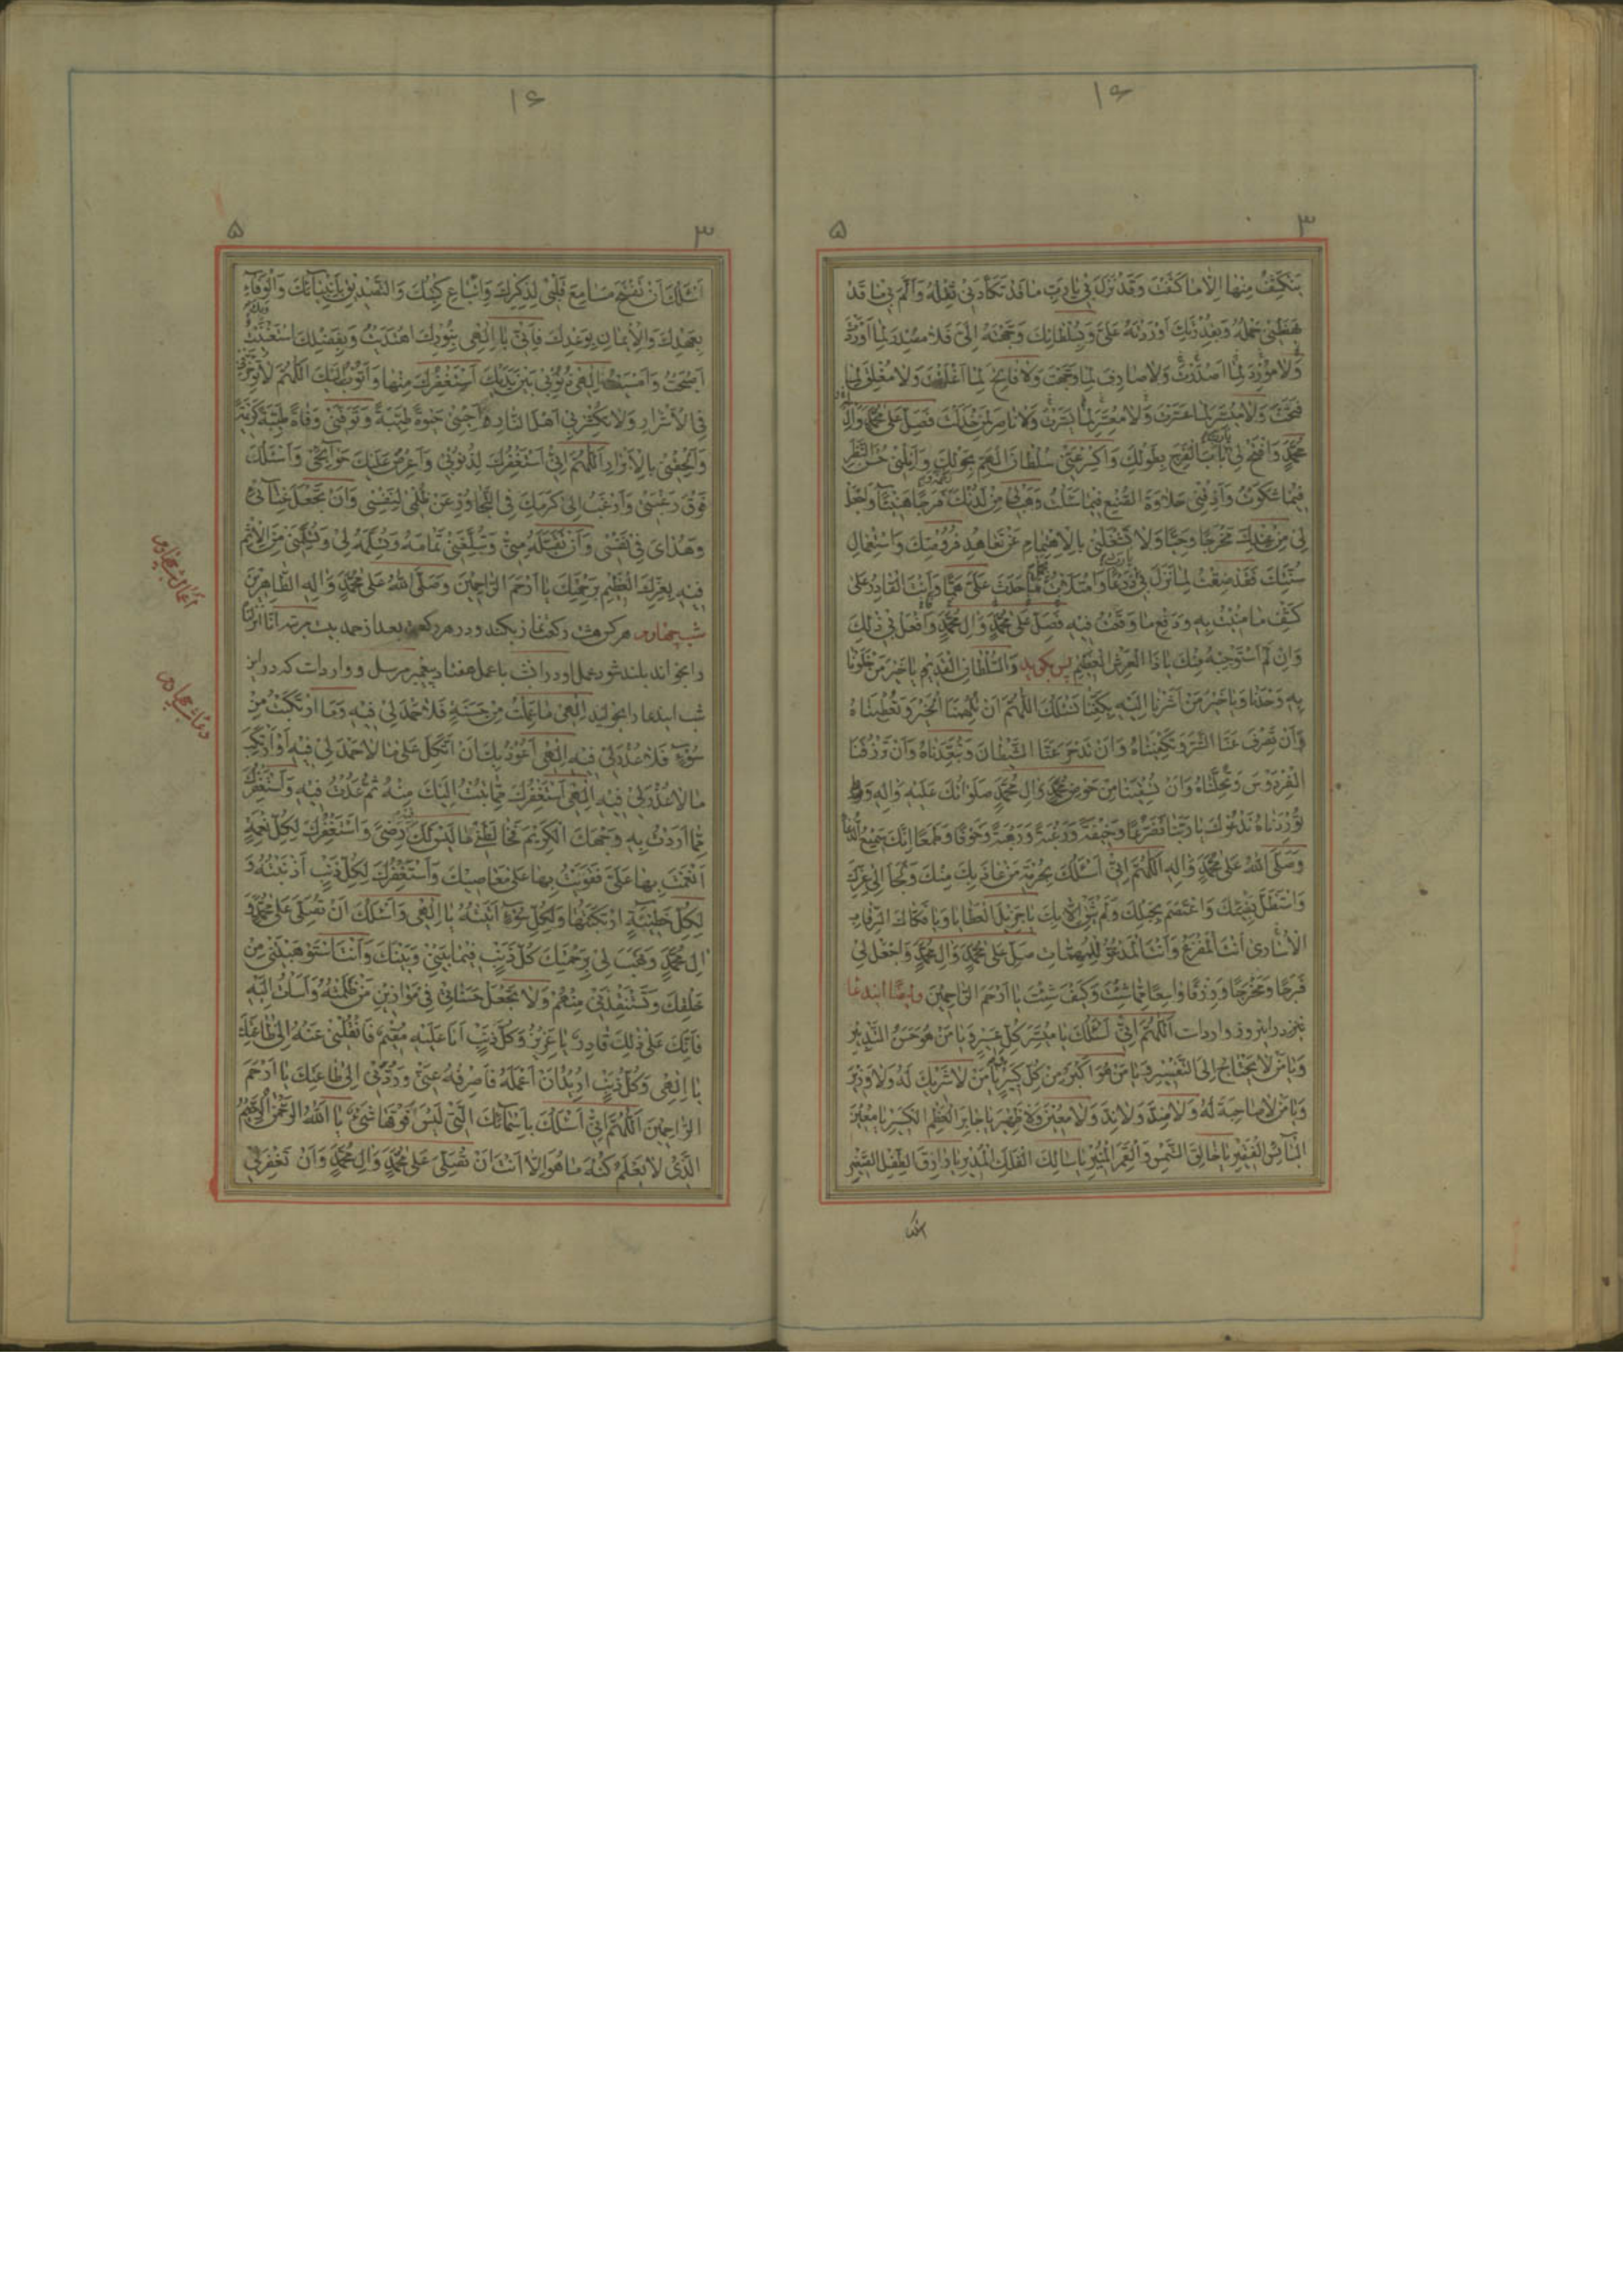 ۱۶
۳ ۵
يَنْكَشِفُ مِنْها اِلّا ما كَشَفْتَ وَقَدْ نَزَلَ بي يا رَبِّ ما قَدْ تَكَأَّدَني ثِقْلُهُ وَاَلَمَّ بي ما قَدْ
بَهَظَني حَمْلُهُ وَبِقُدْرَتِكَ اَوْرَدْتَهُ عَلَيَّ وَبِسُلْطانِكَ وَجَّهْتَهُ اِلَيَّ فَلا مُصْدِرَ لِما اَوْرَدْتَ
وَلا مُورِدَ لِما اَصْدَرْتَ وَلا صارِفَ لِما وَجَّهْتَ وَلا فاتِحَ لِما اَغْلَقْتَ وَلا مُغْلِقَ لِما
فَتَحْتَ وَلا مُيَسِّرَ لِما عَسَّرْتَ وَلا مُعَسِّرَ لِما يَسَّرْتَ وَلا ناصِرَ لِمَنْ خَذَلْتَ فَصَلِّ عَلى مُحَمَّدٍ وَالِ
مُحَمَّدٍ وَافْتَحْ لي يا رَبِّ بابَ الْفَرَجِ بِطَوْلِكَ وَاكْسِرْ عَنّي سُلْطانَ الْهَمِّ بِحَوْلِكَ وَاَنِلْني حُسْنَ النَّظَرِ
فيما شَكَوْتُ وَاَذِقْني حَلاوَةَ الصُّنْعِ فيما سَاَلْتُ وَهَبْ لي مِنْ لَدُنْكَ فَرَجًا هَنيئًا وَاجْعَلْ
لي مِنْ عِنْدِكَ مَخْرَجًا وَحِيًّا وَلا تَشْغَلْني بِالْاِهْتِمامِ عَنْ تَعاهُدِ فُرُوضِكَ وَاسْتِعْمالِ
سُنَّتِكَ فَقَدْ ضِقْتُ لِما نَزَلَ بي يا رَبِّ ذَرْعًا وَامْتَلَأْتُ بِحَمْلِ ما حَدَثَ عَلَيَّ هَمًّا وَاَنْتَ الْقادِرُ عَلى
كَشْفِ ما مُنيتُ بِهِ وَدَفْعِ ما وَقَعْتُ فيهِ فَصَلِّ عَلى مُحَمَّدٍ وَالِ مُحَمَّدٍ وَافْعَلْ بي ذلِكَ
وَاِنْ لَمْ اَسْتَوْجِبْهُ مِنْكَ يا ذَا الْعَرْشِ الْعَظيمِ پس بگويد وَالسُّلْطانِ الْقَديمِ يا خَيْرَ مَنْ خَلَوْنا
بِهِ وَحْدَنا وَيا خَيْرَ مَنْ اَشَرْنا اِلَيْهِ بِكَفِّنا نَسْئَلُكَ اللّهُمَّ اَنْ تُلْهِمَنَا الْخَيْرَ وَتُعْطِيَناهُ
وَاَنْ تَصْرِفَ عَنَّا الشَّرَّ وَتَكْفِيَناهُ وَاَنْ تَدْحَرَ عَنَّا الشَّيْطانَ وَتُبْعِدَناهُ وَاَنْ تَرْزُقَنَا
الْفِرْدَوْسَ وَتُحِلَّناهُ وَاَنْ تَسْقِيَنا مِنْ حَوْضِ مُحَمَّدٍ وَالِ مُحَمَّدٍ صَلَواتُكَ عَلَيْهِ وَالِهِ
تُورِدَناهُ نَدْعُوكَ يا رَبَّنا تَضَرُّعًا وَخيفَةً وَرَغْبَةً وَرَهْبَةً وَخَوْفًا وَطَمَعًا اِنَّكَ سَميعُ الدُّعاءِ
وَصَلَّى اللّهُ عَلى مُحَمَّدٍ وَالِهِ اَللّهُمَّ اِنّي اَسْئَلُكَ بِحُرْمَةِ مَنْ عاذَ بِكَ مِنْكَ وَلَجَأَ اِلى عِزِّكَ
وَاسْتَظَلَّ بِفَيْئِكَ وَاعْتَصَمَ بِحَبْلِكَ وَلَمْ يَثِقْ اِلّا بِكَ يا جَزيلَ الْعَطايا وَيا فَكّاكَ الرِّقابِ
الْاُسارى اَنْتَ الْمَفْزَعُ وَاَنْتَ الْمَدْعُوُّ لِلْمُهِمّاتِ صَلِّ عَلى مُحَمَّدٍ وَالِ مُحَمَّدٍ وَاجْعَلْ لي
فَرَجًا وَمَخْرَجًا وَرِزْقًا واسِعًا مِمّا شِئْتَ وَكَيْفَ شِئْتَ يا اَرْحَمَ الرّاحِمينَ وايضًا ايندعا
نيز در اينروز وارد است اَللّهُمَّ اِنّي اَسْئَلُكَ يا مُيَسِّرَ كُلِّ عَسيرٍ وَيا مَنْ هُوَ حَسَنُ التَّدْبيرِ
وَيا مَنْ لا يَحْتاجُ اِلَى التَّفْسيرِ وَيا مَنْ هُوَ اَكْبَرُ مِنْ كُلِّ كَبيرٍ يا مَنْ لا شَريكَ لَهُ وَلا وَزيرَ
وَيا مَنْ لا صاحِبَةَ لَهُ وَلا ضِدَّ وَلا نِدَّ وَلا مُعينَ وَلا ظَهيرَ يا جابِرَ الْعَظْمِ الْكَسيرِ يا مُعينَ
الْبائِسِ الْفَقيرِ يا خالِقَ الشَّمْسِ وَالْقَمَرِ الْمُنيرِ يا سالِكَ الْفَلَكِ الْمُديرِ يا رازِقَ الطِّفْلِ الصَّغيرِ
۱۶
۳ ۵
اَسْئَلُكَ اَنْ تَفْتَحَ مَسامِعَ قَلْبي لِذِكْرِكَ وَاتِّباعِ كِتابِكَ وَالتَّصْديقِ بِاَنْبِيائِكَ وَالْوَفاءِ
بِعَهْدِكَ وَالْايمانِ بِوَعْدِكَ فَاِنّي يا اِلهي بِنُورِكَ اهْتَدَيْتُ وَبِفَضْلِكَ اسْتَغْنَيْتُ
اَصْبَحْتُ وَاَمْسَيْتُ اِلهي ذُنُوبي بَيْنَ يَدَيْكَ اَسْتَغْفِرُكَ مِنْها وَاَتُوبُ اِلَيْكَ اَللّهُمَّ لا
فِي الْاَشْرارِ وَلا تُكَثِّرْ بي اَهْلَ النّارِ اَحْيِني حَيوةً طَيِّبَةً وَتَوَفَّني وَفاةً طَيِّبَةً
وَاَلْحِقْني بِالْاَبْرارِ اَللّهُمَّ اِنّي اَسْتَغْفِرُكَ لِذُنُوبي وَاَعْرِضُ عَلَيْكَ حَوائِجي وَاَسْئَلُكَ
فَوْقَ رَغْبَتي وَاَرْغَبُ اِلى كَرَمِكَ فِي التَّجاوُزِ عَنْ ظُلْمي لِنَفْسي وَاَنْ تَجْعَلَ غِنائي
وَهُدايَ في نَفْسي وَاَنْ تَقْبَلَهُ مِنّي وَتُبَلِّغَني تَمامَهُ وَتُسَلِّمَهُ لي وَتُسَلِّمَني مِنَ الْاِثْمِ
فيهِ بِعِزِّكَ الْعَظيمِ بِرَحْمَتِكَ يا اَرْحَمَ الرّاحِمينَ وَصَلَّى اللّهُ عَلى مُحَمَّدٍ وَالِهِ الطّاهِرينَ
شب چهاردهم هر كس هشت ركعت نماز بكند ودر هر ركعت بعد از حمد بيست مرتبه انا انزلنا
را بخواند بلند شود عمل او در انشب با عمل هفتاد پيغمبر مرسل و وارد است كه در اين
شب ايندعا را بخوانيد اِلهي ما عَمِلْتُ مِنْ حَسَنَةٍ فَلا حَمْدَ لي فيهِ وَمَا ارْتَكَبْتُ مِنْ
سُوءٍ فَلا عُذْرَ لي فيهِ اِلهي اَعُوذُ بِكَ اَنْ اَتَّكِلَ عَلى ما لا حَمْدَ لي فيهِ اَوْ اَرْتَكِبَ
ما لا عُذْرَ لي فيهِ اِلهي اَسْتَغْفِرُكَ مِمّا تُبْتُ اِلَيْكَ مِنْهُ ثُمَّ عُدْتُ فيهِ وَاَسْتَغْفِرُكَ
مِمّا اَرَدْتُ بِهِ وَجْهَكَ الْكَريمَ فَخالَطَني ما لَيْسَ لَكَ رِضىً وَاَسْتَغْفِرُكَ لِكُلِّ نِعْمَةٍ
اَنْعَمْتَ بِها عَلَيَّ فَقَوِيتُ بِها عَلى مَعاصيكَ وَاَسْتَغْفِرُكَ لِكُلِّ ذَنْبٍ اَذْنَبْتُهُ وَ
لِكُلِّ خَطيئَةٍ ارْتَكَبْتُها وَلِكُلِّ سُوءٍ اَتَيْتُهُ يا اِلهي وَاَسْئَلُكَ اَنْ تُصَلِّيَ عَلى مُحَمَّدٍ وَ
الِ مُحَمَّدٍ وَتَهَبَ لي بِرَحْمَتِكَ كُلَّ ذَنْبٍ فيما بَيْني وَبَيْنَكَ وَاَنْ تَسْتَوْهِبَني مِنْ
خَلْقِكَ وَتَسْتَنْقِذَني مِنْهُمْ وَلا تَجْعَلْ حَسَناتي في مَوازينِ مَنْ ظَلَمْتُهُ وَاَسَأْتُ اِلَيْهِ
فَاِنَّكَ عَلى ذلِكَ قادِرٌ يا عَزيزُ وَكُلُّ ذَنْبٍ اَنَا عَلَيْهِ مُقيمٌ فَانْقُلْني عَنْهُ اِلى طاعَتِكَ
يا اِلهي وَكُلُّ ذَنْبٍ اُريدُ اَنْ اَعْمَلَهُ فَاصْرِفْهُ عَنّي وَرُدَّني اِلى طاعَتِكَ يا اَرْحَمَ
الرّاحِمينَ اَللّهُمَّ اِنّي اَسْئَلُكَ بِاَسْمائِكَ الَّتي لَيْسَ فَوْقَها شَيْءٌ يا اَللّهُ الرَّحْمنُ الرَّحيمُ
الَّذي لا يَعْلَمُ كُنْهَ ما هُوَ اِلّا اَنْتَ اَنْ تُصَلِّيَ عَلى مُحَمَّدٍ وَالِ مُحَمَّدٍ وَاَنْ تَغْفِرَ لي
اعمال شب چهاردهم
دعای شب چهاردهم